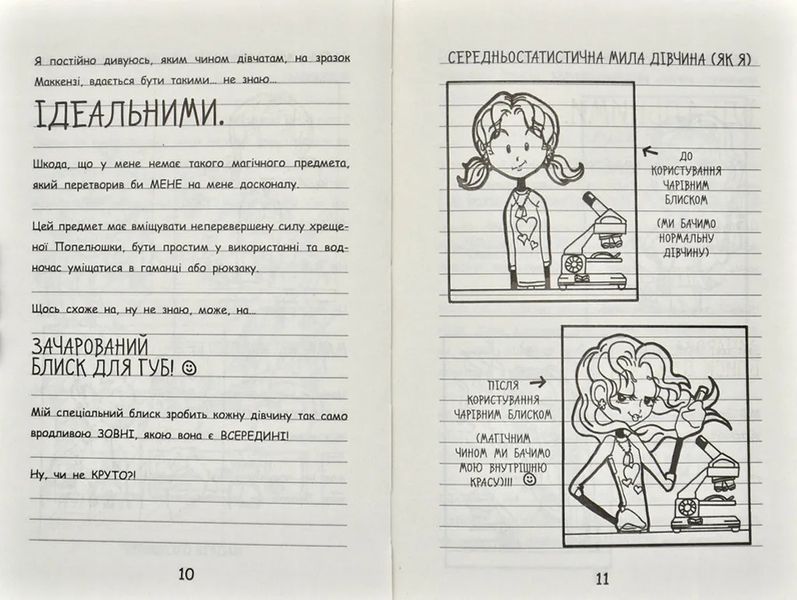 Я постійно дивуюсь, яким чином дівчатам, на зразок
Маккензі, вдається бути такими... не знаю...
ІДЕАЛЬНИМИ.
Шкода, що у мене немає такого магічного предмета,
який перетворив би МЕНЕ на мене досконалу.
Цей предмет має вміщувати неперевершену силу хреще-
ної Попелюшки, бути простим у використанні та вод-
ночас уміщатися в гаманці або рюкзаку.
Щось схоже на, ну не знаю, може, на...
ЗАЧАРОВАНИЙ
БЛИСК ДЛЯ ГУБ! ☺
Мій спеціальний блиск зробить кожну дівчину так само
вродливою ЗОВНІ, якою вона є ВСЕРЕДИНІ!
Ну, чи не КРУТО?!
10
СЕРЕДНЬОСТАТИСТИЧНА МИЛА ДІВЧИНА (ЯК Я)
ДО
КОРИСТУВАННЯ
ЧАРІВНИМ
БЛИСКОМ
(МИ БАЧИМО
НОРМАЛЬНУ
ДІВЧИНУ)
ПІСЛЯ
КОРИСТУВАННЯ
ЧАРІВНИМ БЛИСКОМ
(МАГІЧНИМ
ЧИНОМ МИ БАЧИМО
МОЮ ВНУТРІШНЮ
КРАСУ)!!! ☺
11